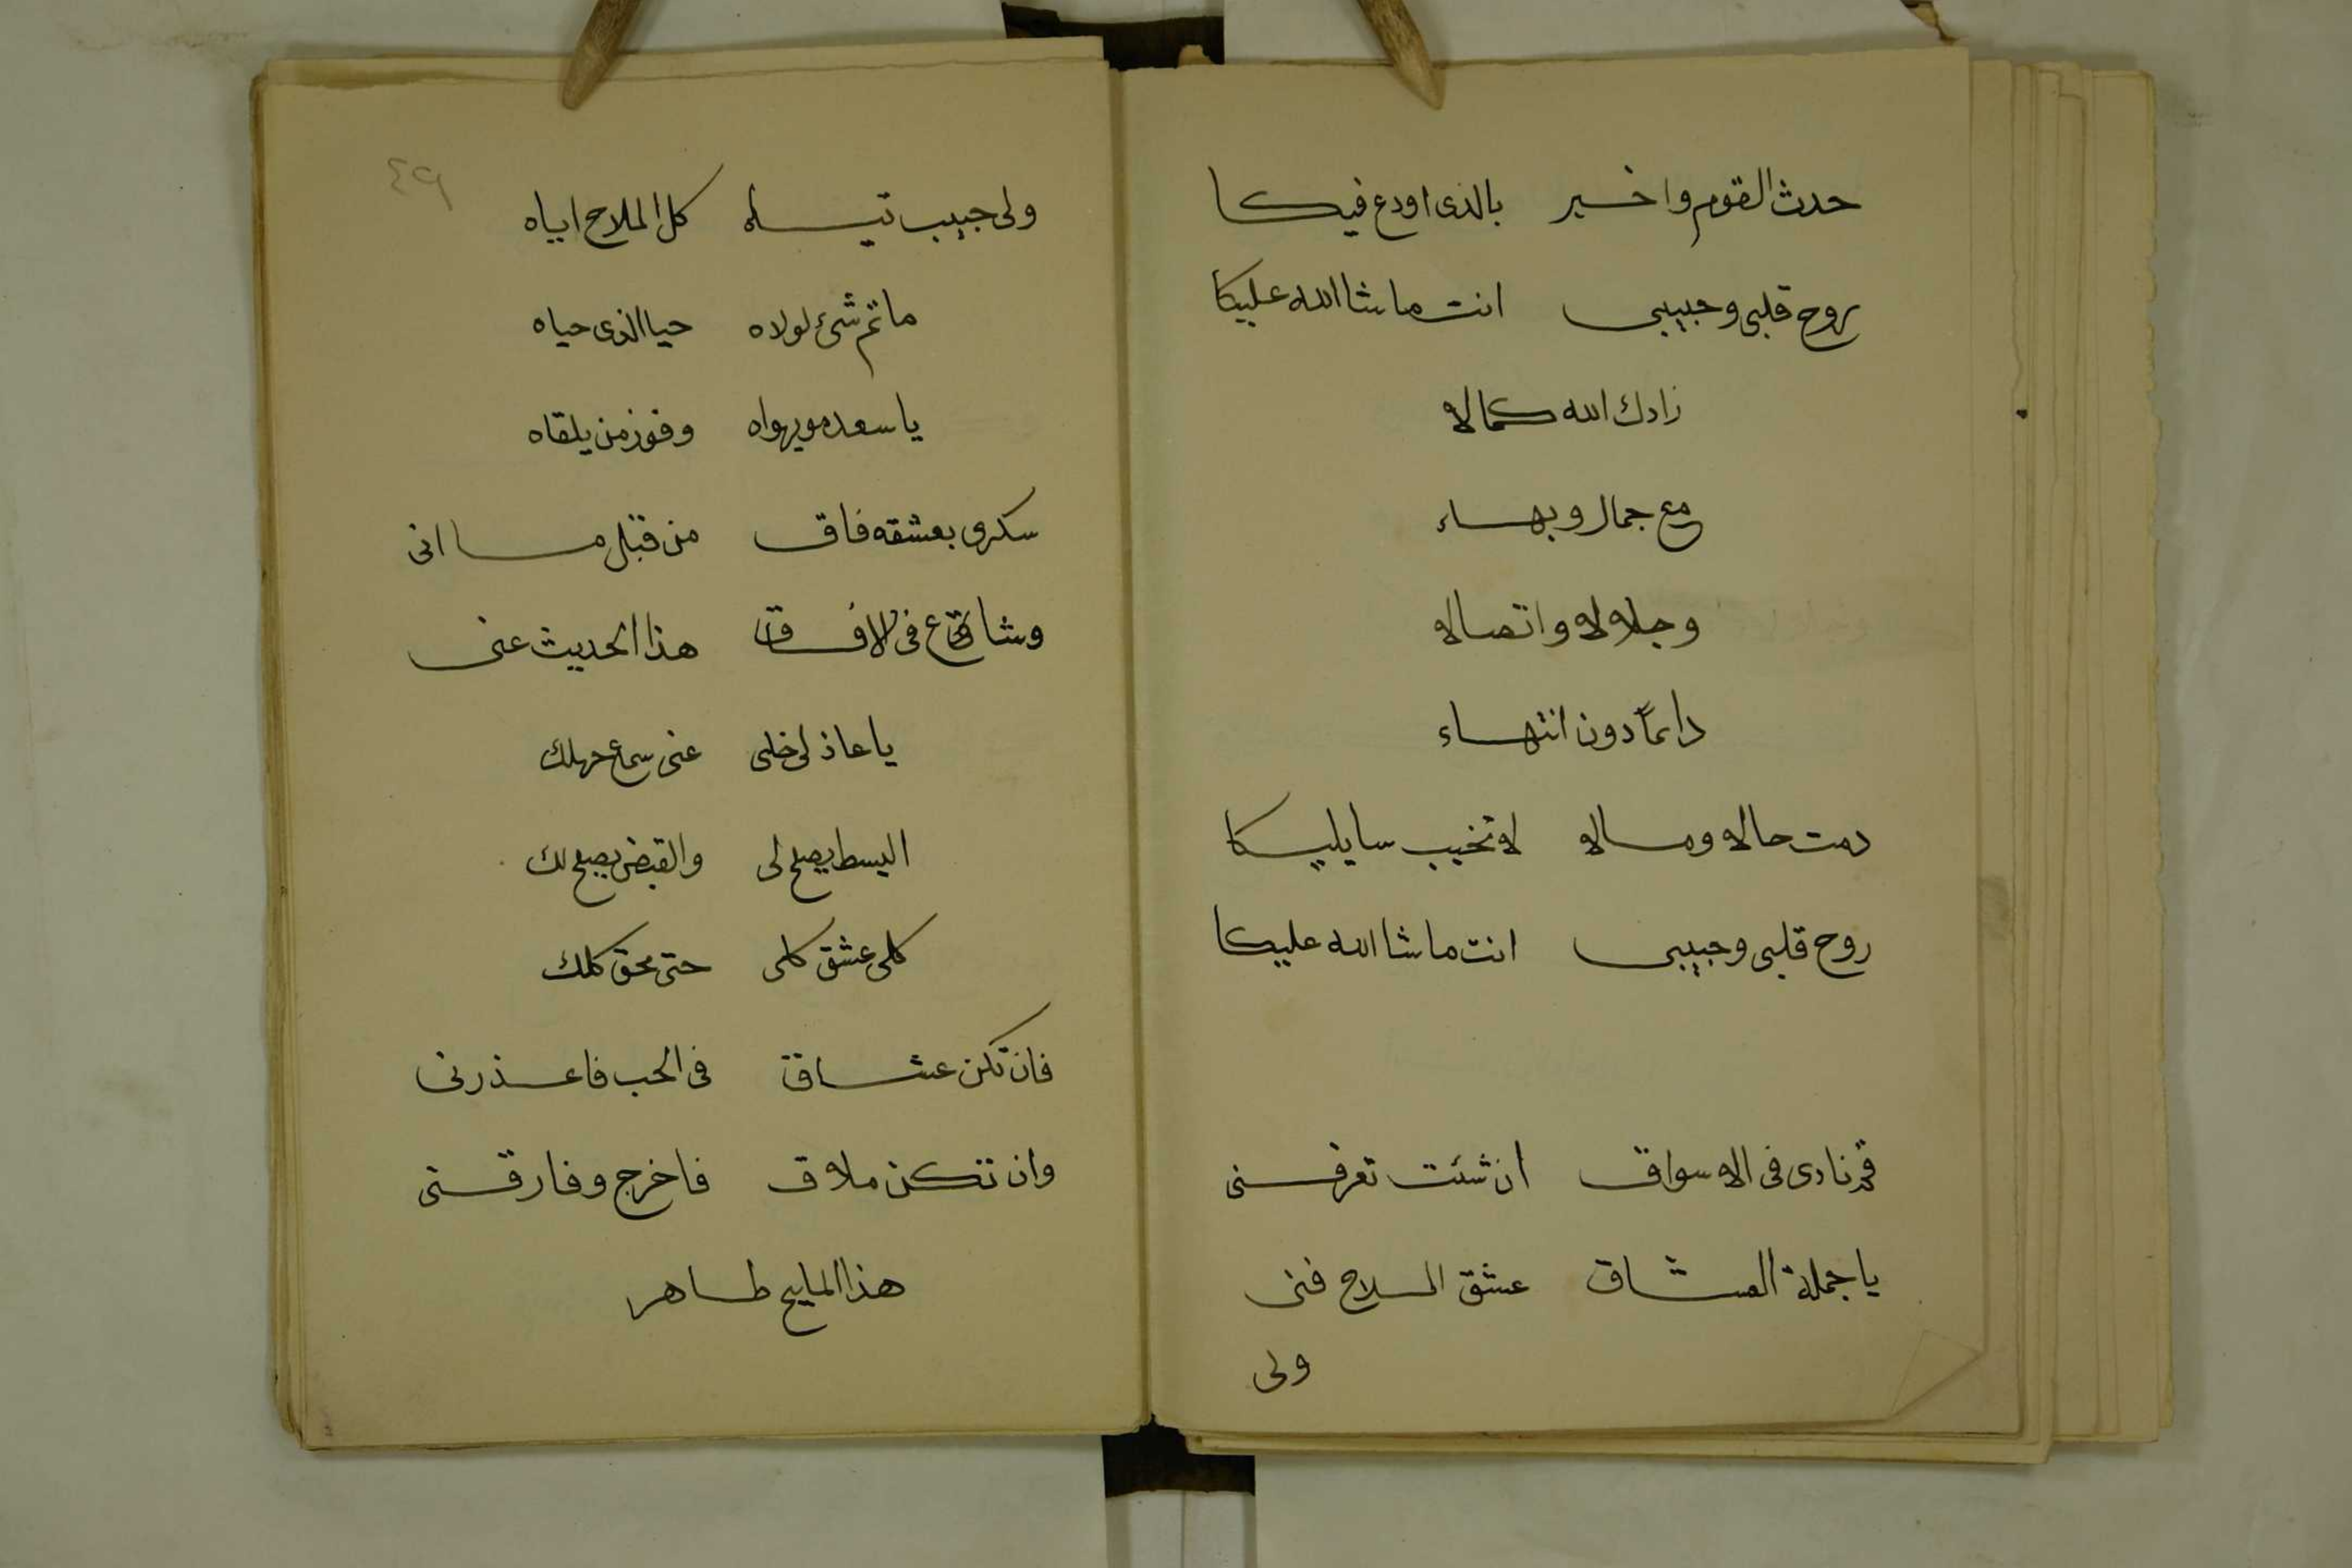 حدث القوم واخبر بالذى اودع فيكا
روح قلبى وحبيبى انت ما شا الله عليكا
زادك الله كمالا
مع جمال وبهاء
وجلالا واتصالا
دايماً دون انتهاء
دمت حالا ومالا لا تخيب سايليكا
روح قلبى وحبيبى انت ما شا الله عليكا
قم نادى فى الاسواق ان شئت تعرفنى
يا جملة العشاق عشق الملاح فنى
ولى
٤٩
ولى حبيب تياه كل الملاح اياه
ما ثم شئ لولاه حيا الذى حياه
يا سعد من يهواه وفوز من يلقاه
سكرى بعشقه فاق من قبل ما انى
وشاع فى الافاق هذا الحديث عنى
يا عاذلى خلى عنى سماع جهلك
البسط يصلح لى والقبض يصلح لك
كلى عشق كلى حتى محق كلك
فان تكن عشاق فى الحب فاعذرنى
وان تكن ملاق فاخرج وفارقنى
هذا المليح ظاهر